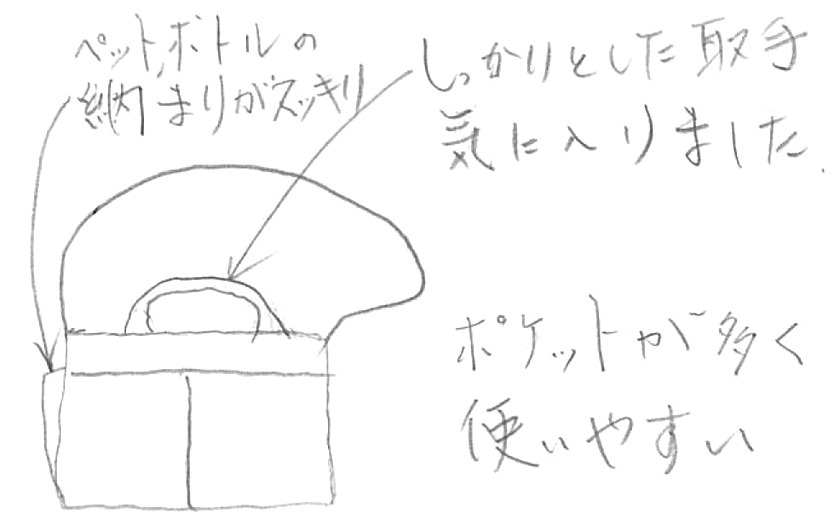 ペットボトルの
納まりがスッキリ
しっかりとした取手
気に入りました.
ポケットが多く
使いやすい